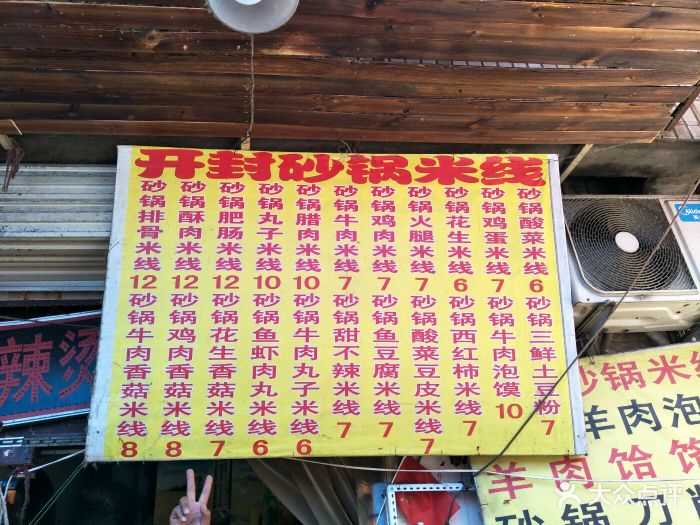 开封砂锅米线
砂锅排骨米线 12
砂锅酥肉米线 12
砂锅肥肠米线 12
砂锅丸子米线 10
砂锅腊肉米线 10
砂锅牛肉米线 7
砂锅鸡肉米线 7
砂锅火腿米线 7
砂锅花生米线 6
砂锅鸡蛋米线 7
砂锅酸菜米线 6
砂锅牛肉香菇米线 8
砂锅鸡肉香菇米线 8
砂锅花生香菇米线 7
砂锅鱼虾肉丸米线 6
砂锅牛肉丸子米线 6
砂锅甜不辣米线 7
砂锅鱼豆腐米线 7
砂锅酸菜豆皮米线 7
砂锅西红柿米线 7
砂锅牛肉泡馍 10
砂锅三鲜土豆粉 7
辣烫
砂锅米线
羊肉泡
羊肉饸饹
大众点评